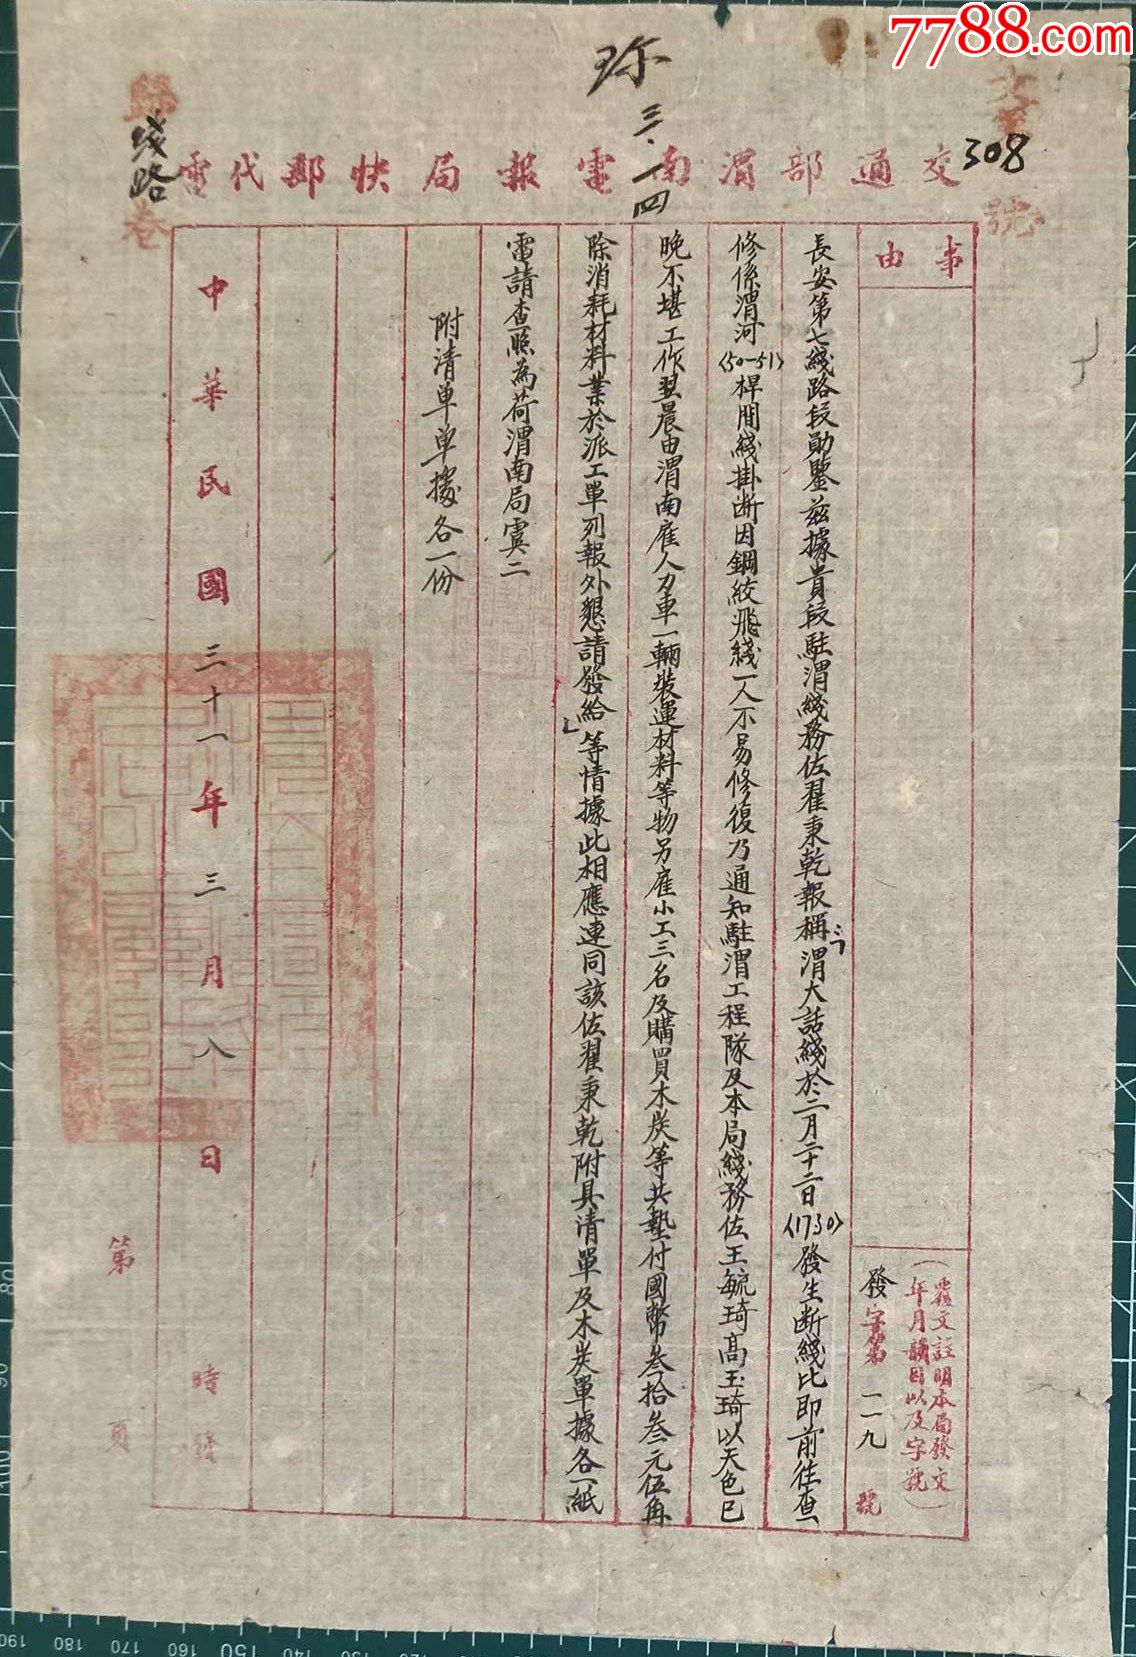 7788.com
珎
三.一四
308
號
歸
綫路
卷
交通部渭南電報局快郵代電
事由
覆文註明本局發文
年月韻目以及字號
發字第二一九號
長安第七綫路段勛鑒茲據貴段駐渭綫務佐翟秉乾報稱渭大話綫於二月二十二日(1730)發生断綫比即前往查
修係渭河(50-51)桿間綫掛断因鋼絞飛綫一人不易修復乃通知駐渭工程隊及本局綫務佐王毓琦高玉琦以天色已
晚不堪工作翌晨由渭南雇人力車一輛裝運材料等物另雇小工三名及購買木炭等共墊付國幣叁拾叁元伍角
除消耗材料業於派工單列報外懇請發給等情據此相應連同該佐翟秉乾附具清單及木炭單據各一紙
電請查照為荷渭南局寘二
附清單單據各一份
中華民國三十一年三月八日
時發
第 頁